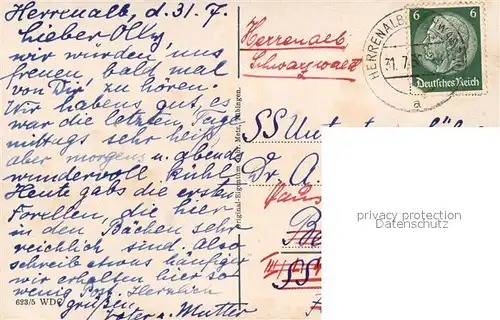 Herrenalb, d. 31. 7.
Lieber Olly
wir würden uns
freuen, bald mal
von Dir zu hören.
Wir habens gut, es
war die letzten Tage
mittags sehr heiß,
aber morgens u. abends
wundervoll kühl.
Heute gabs die ersten
Forellen, die hier
in den Bächen sehr
reichlich sind. Also
schreibe etwas häufiger
wir erhalten hier so
wenig Post. Herzlich
grüßen
Vater u. Mutter
623/5 WDC
Original-Eigentum Gebr. Metz, Tübingen.
Herrenalb,
Schwarzwald
HERRENALB
31. 7.
a
6 6
Deutsches Reich
SS
Dr. A.
SS
privacy protection
ansichtskarten-lexikon.de